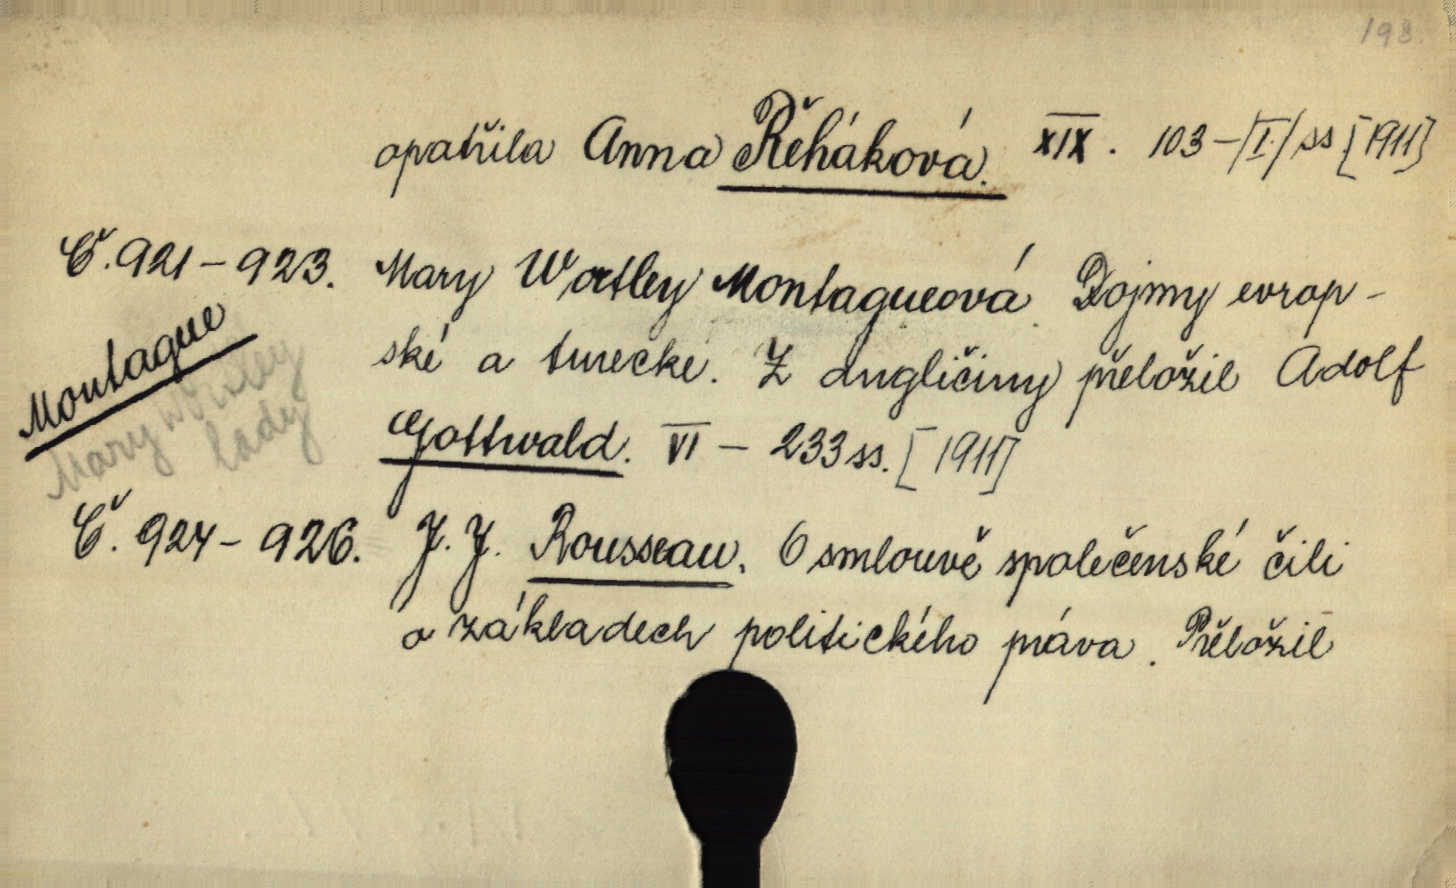 198.
opatřila Anna Řeháková. XIX. 103-/I./ss [1911]
Č. 921-923. Mary Wortley Montagueová. Dojmy evrop-
Montague
Mary Wortley
lady
ské a turecké. Z angličiny přeložil Adolf
Gottwald. VI - 233 ss. [1911]
Č. 924-926. J. J. Rousseau. O smlouvě společenské čili
o základech politického práva. Přeložil